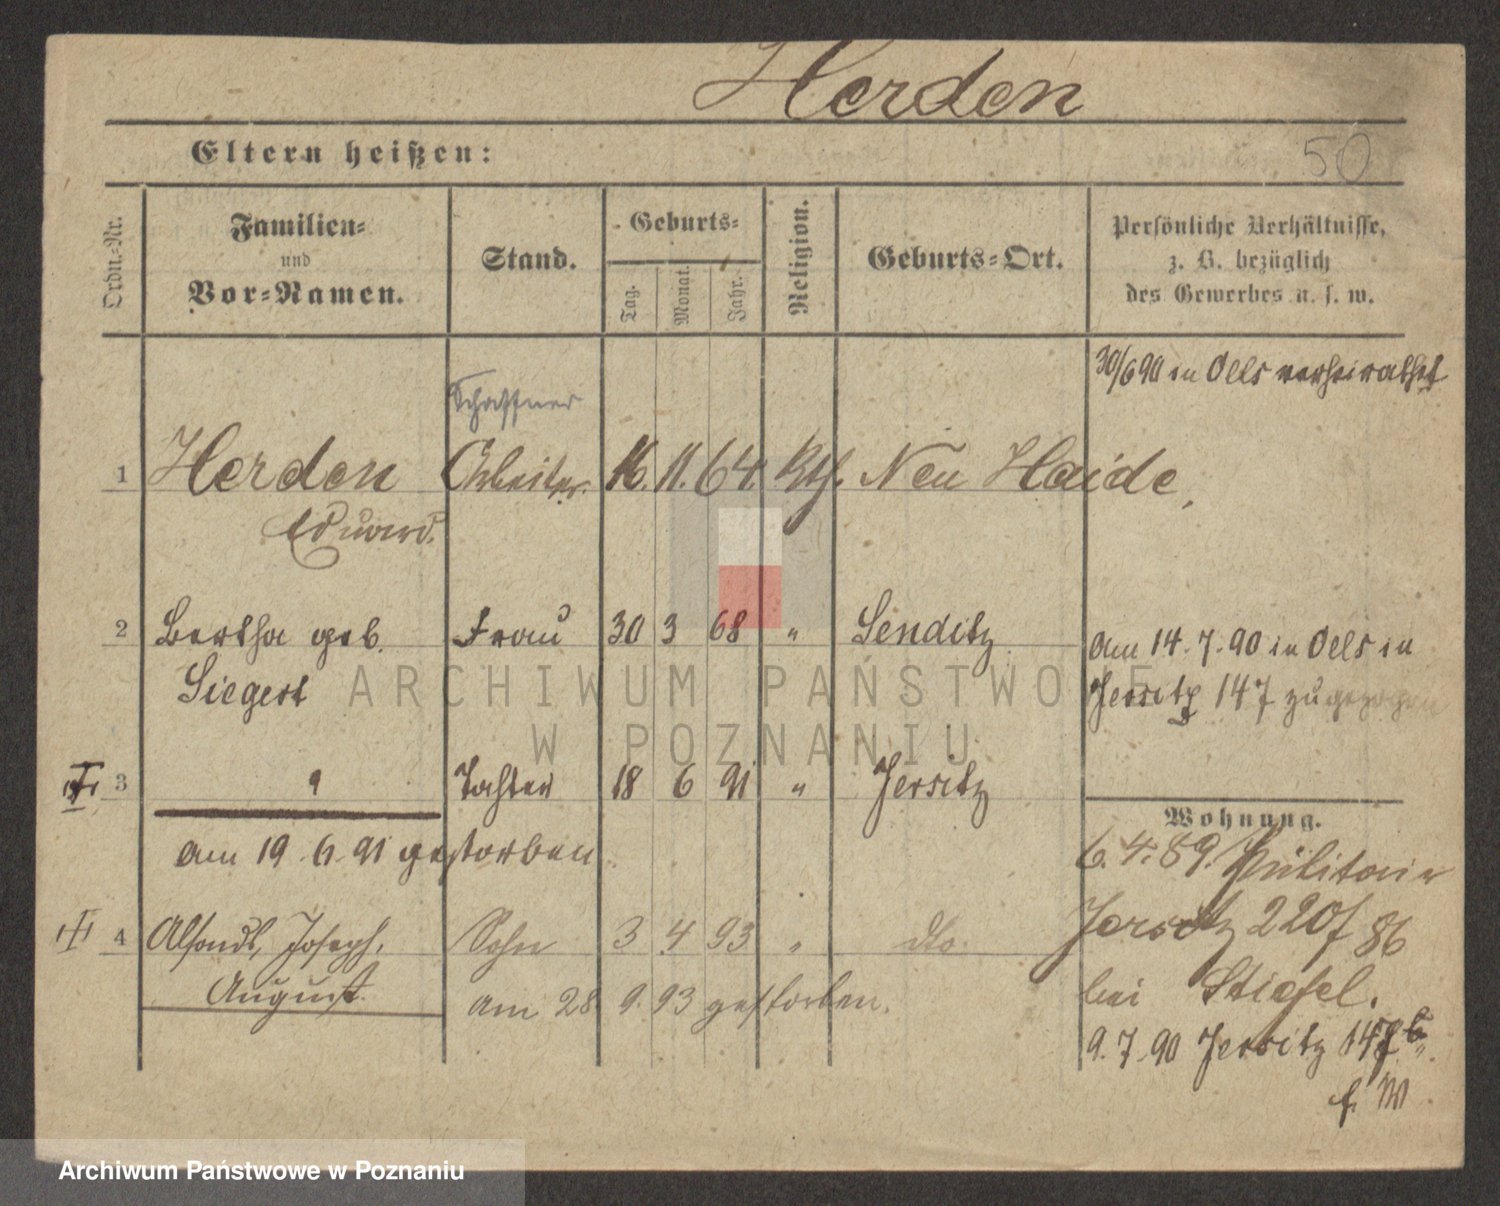 Herden
Eltern heißen:
50
Ordn.-Nr.
Familien-
und
Vor-Namen.
Stand.
Geburts-
Tag.
Monat.
Jahr.
Religion.
Geburts-Ort.
Persönliche Verhältnisse,
z. B. bezüglich
des Gewerbes u. s. w.
30/6 90 in Oels verheirathet
Schaffner
1 Herden Arbeiter. 16. 11. 64. Kth. Neu Haide,
Eduard.
2 Bertha geb. Frau 30 3 68 " Senditz
Siegert
am 14.7.90 in Oels in
Jersitz 147 zugezogen
3 Tochter 18 6 91 " Jersitz
am 19.6.91 gestorben
Wohnung.
6.4.89.
Jersitz 220f 86
bei Stiefel.
9.7.90 Jersitz 147b
f. W
4 Joseph, Sohn 3 4 93 " dto.
August.
am 28 9. 93 gestorben.
ARCHIWUM PAŃSTWOWE
W POZNANIU
Archiwum Państwowe w Poznaniu